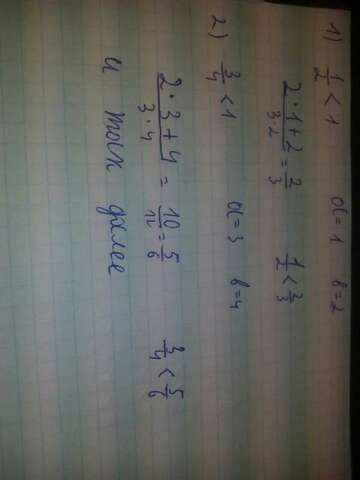 1) 1/2 < 1 a=1 b=2
2·1+2/3·2 = 2/3 1/2 < 2/3
2) 3/4 < 1 a=3 b=4
2·3+4/3·4 = 10/12 = 5/6 3/4 < 5/6
и так далее